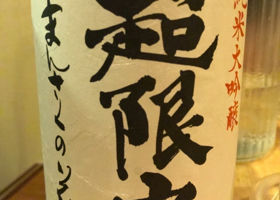 純米大吟醸
超限
まんさくの花